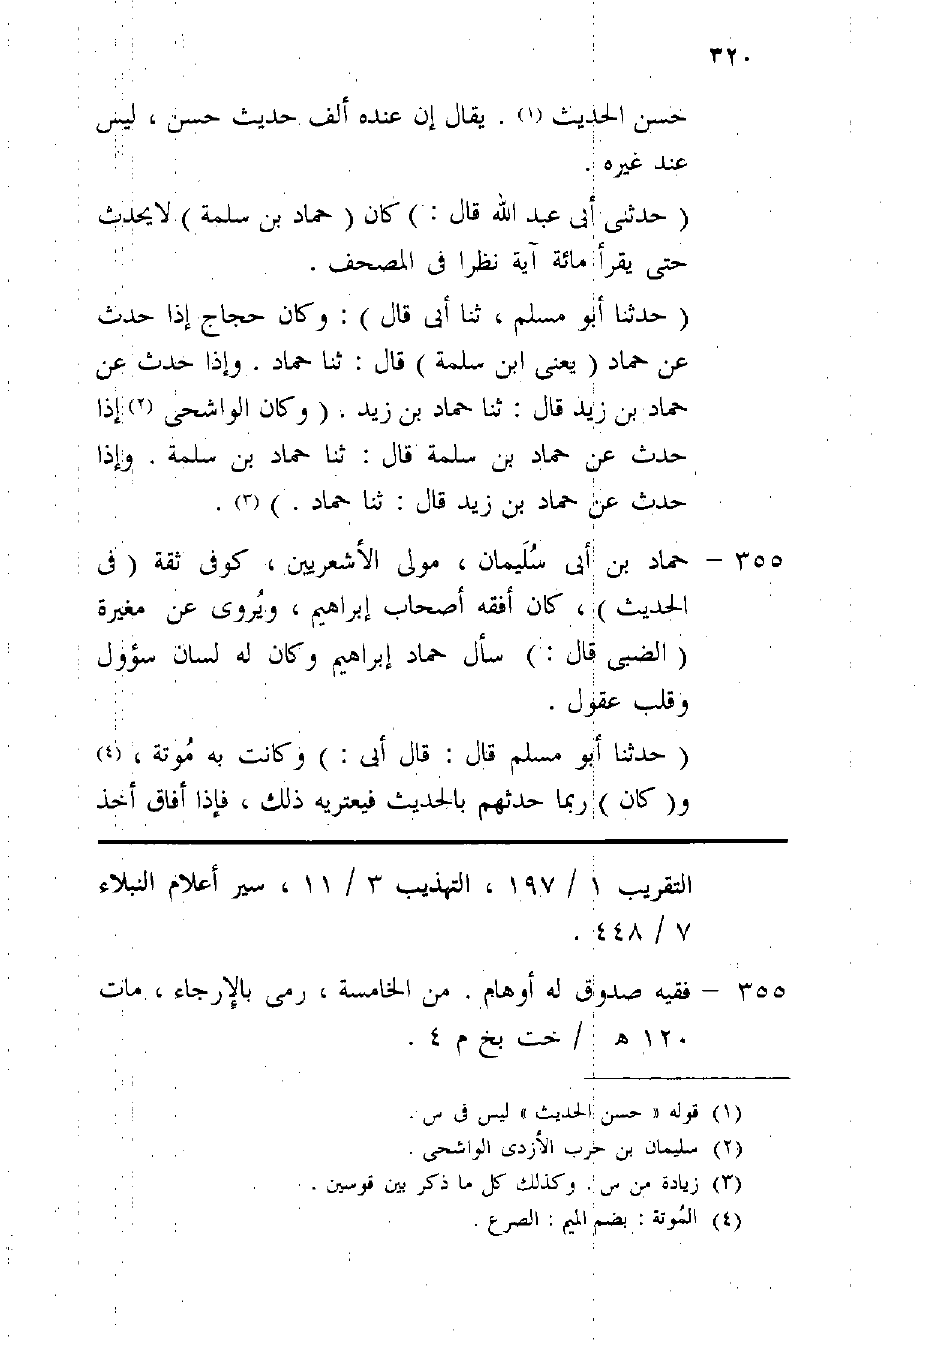 ٣٢٠
حسن الحديث (١) . يقال إن عنده ألف حديث حسن ، ليس
عند غيره .
( حدثنى أبى عبد الله قال : ) كان ( حماد بن سلمة ) لايحدث
حتى يقرأ مائة آية نظرا فى المصحف .
( حدثنا أبو مسلم ، ثنا أبى قال ) : وكان حجاج إذا حدث
عن حماد ( يعنى ابن سلمة ) قال : ثنا حماد . وإذا حدث عن
حماد بن زيد قال : ثنا حماد بن زيد . ( وكان الواشحى (٢) إذا
حدث عن حماد بن سلمة قال : ثنا حماد بن سلمة . وإذا
حدث عن حماد بن زيد قال : ثنا حماد . ) (٣) .
٣٥٥ – حماد بن أبى سُلَيمان ، مولى الأشعريين ، كوفى ثقة ( فى
الحديث ) ، كان أفقه أصحاب إبراهيم ، ويُروى عن مغيرة
( الضبى قال : ) سأل حماد إبراهيم وكان له لسان سؤول
وقلب عقول .
( حدثنا أبو مسلم قال : قال أبى : ) وكانت به مُوتة ، (٤)
و( كان ) ربما حدثهم بالحديث فيعتريه ذلك ، فإذا أفاق أخذ
التقريب ١ / ١٩٧ ، التهذيب ٣ / ١١ ، سير أعلام النبلاء
٧ / ٤٤٨ .
٣٥٥ – فقيه صدوق له أوهام . من الخامسة ، رمى بالإرجاء ، مات
١٢٠ هـ / خت بخ م ٤ .
(١) قوله « حسن الحديث » ليس فى س .
(٢) سليمان بن حرب الأزدى الواشحى .
(٣) زيادة من س . وكذلك كل ما ذكر بين قوسين .
(٤) المُوتة : بضم الميم : الصرع .